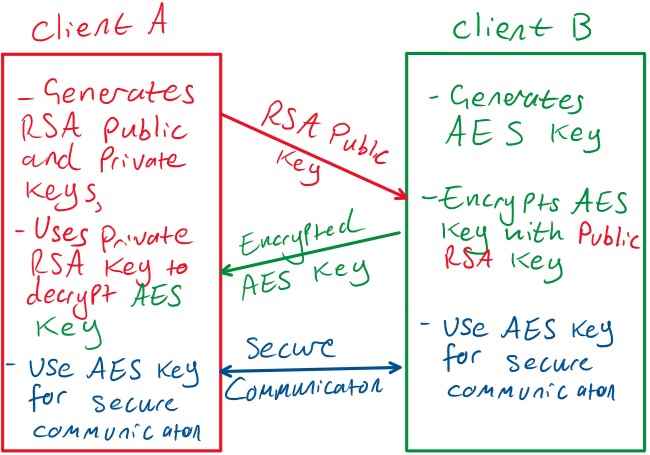 Client A
- Generates
RSA Public
and Private
Keys,
- Uses Private
RSA Key to
decrypt AES
Key
- Use AES Key
for secure
communicaton
RSA Public
Key
Encrypted
AES Key
Secure
Communicaton
Client B
- Generates
AES Key
- Encrypts AES
Key with Public
RSA Key
- Use AES Key
for secure
communicaton